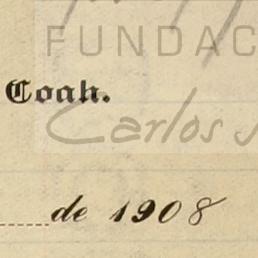 FUNDAC
Coah.
Carlos
de 1908